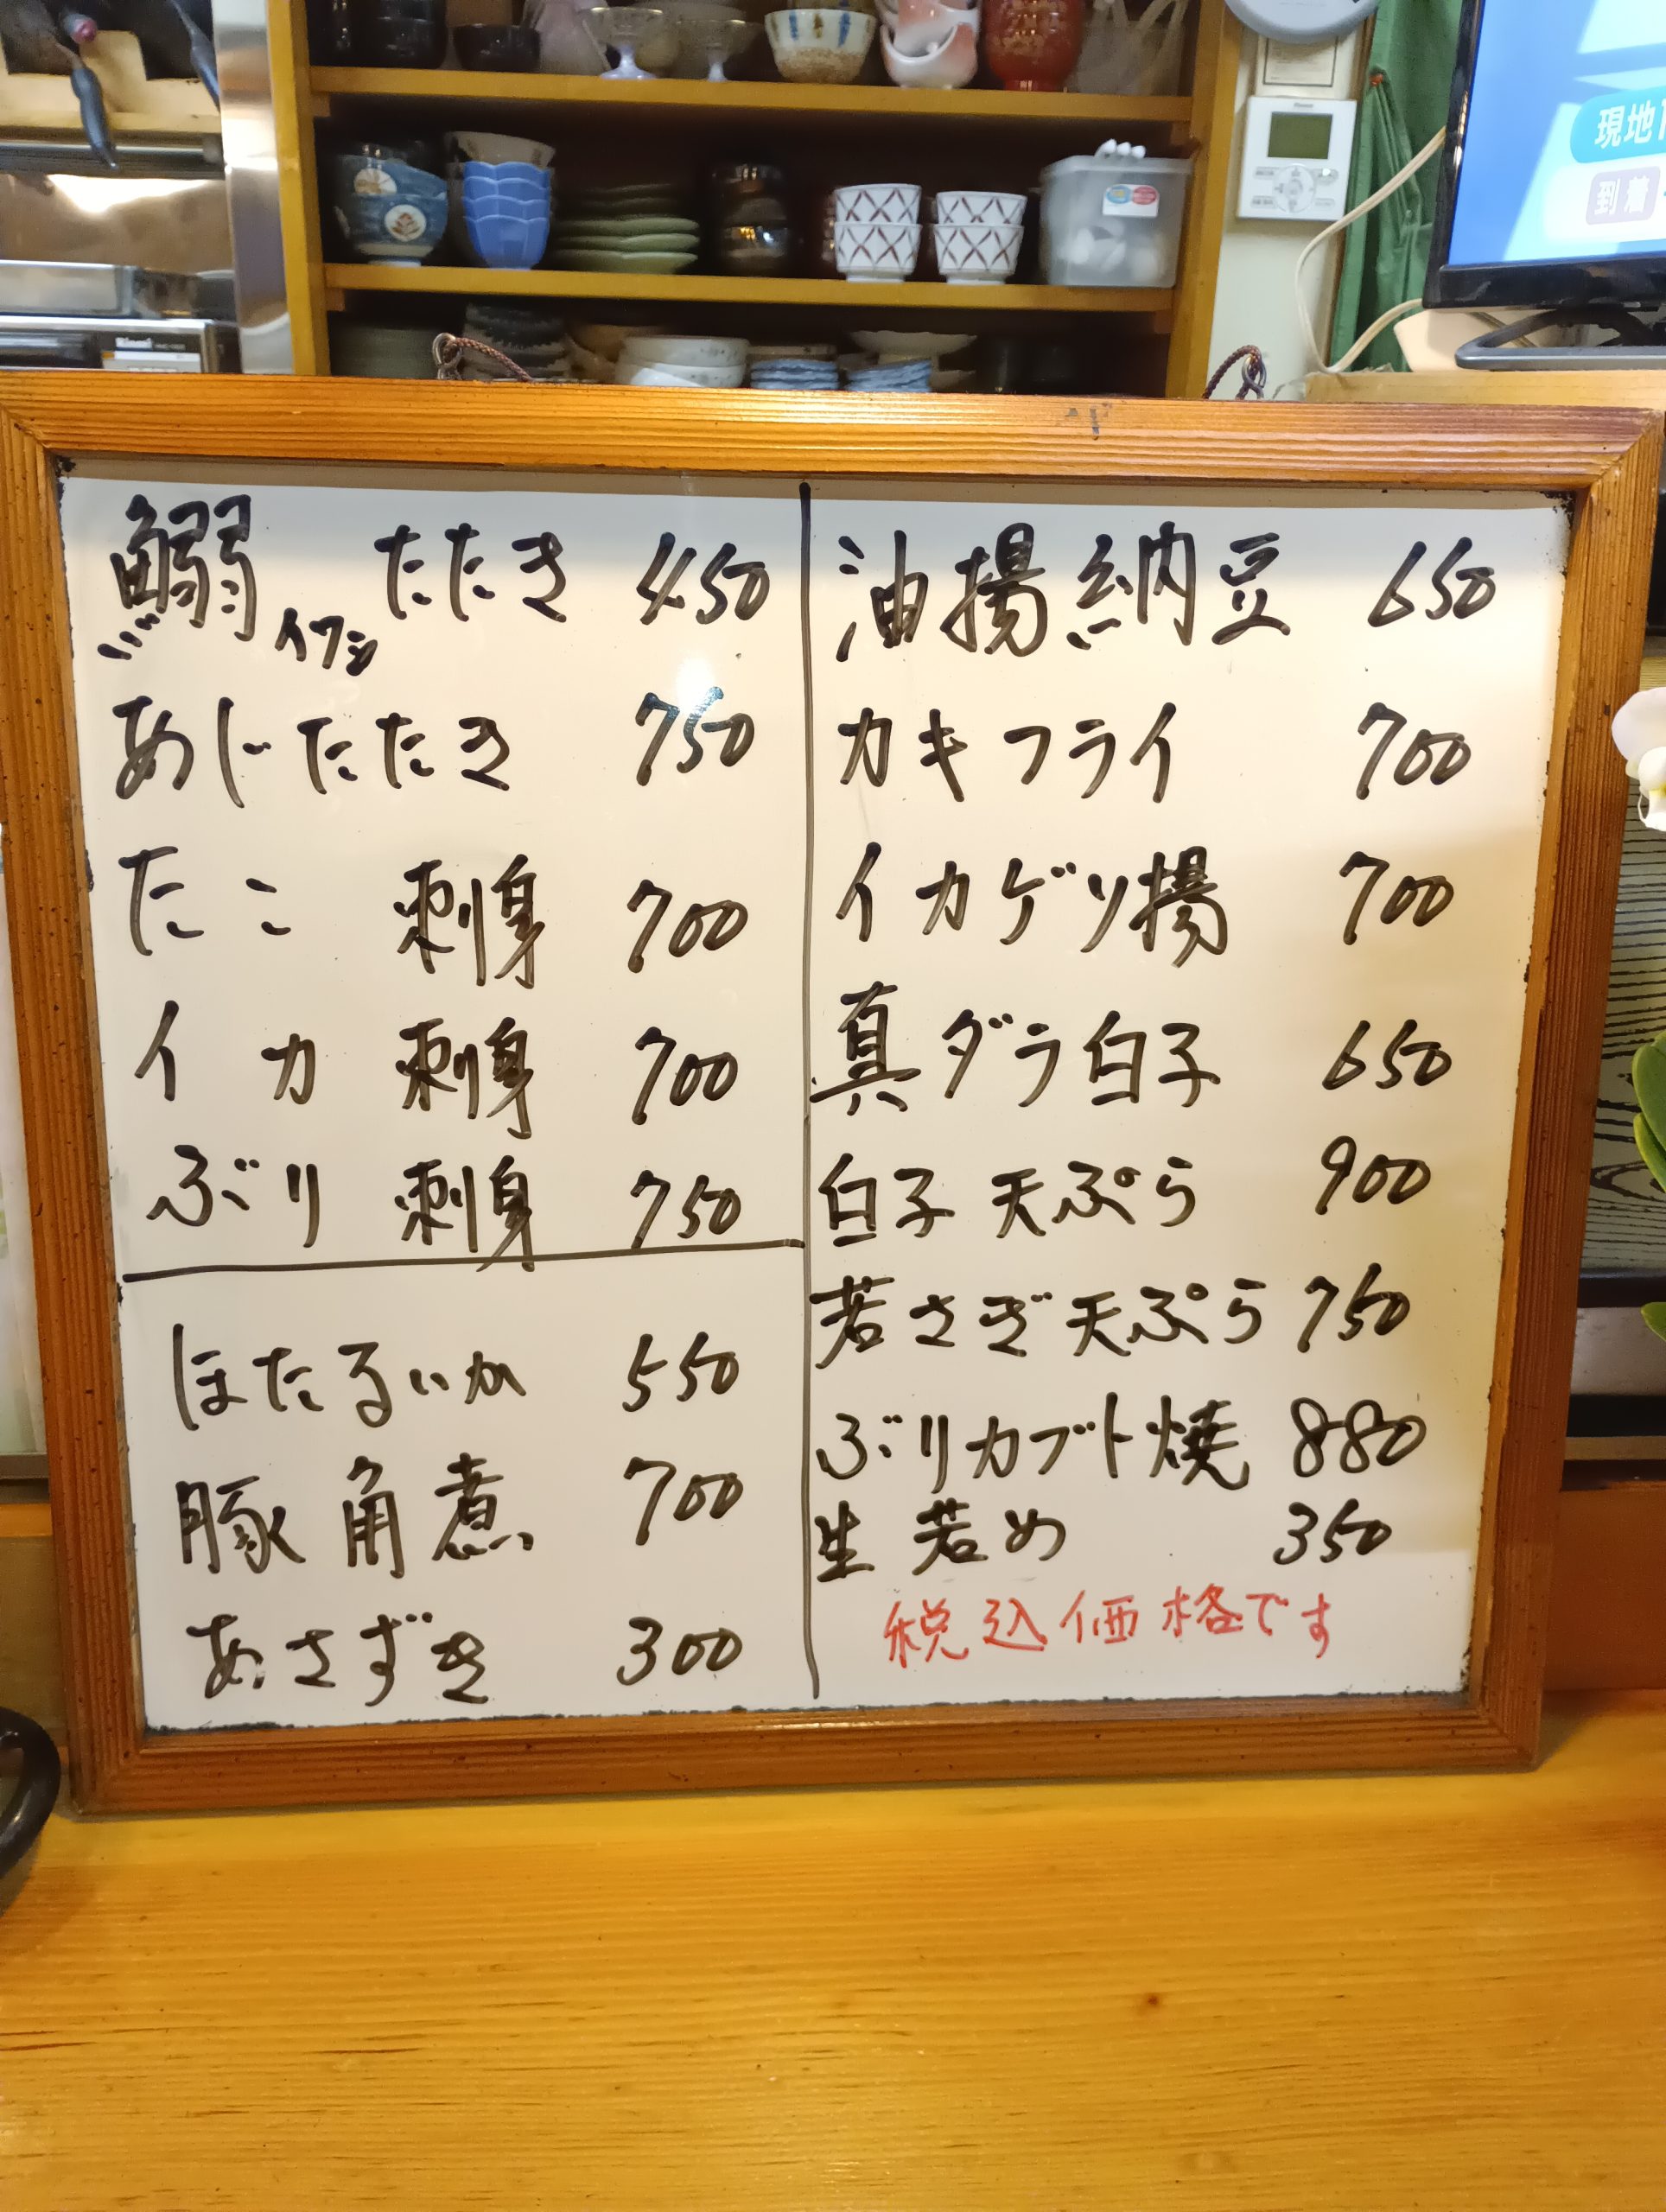 鰯 イワシ たたき 450
あじたたき 750
たこ 刺身 700
イカ 刺身 700
ぶり 刺身 750
ほたるいか 550
豚角煮 700
あさずき 300
油揚納豆 650
カキフライ 700
イカゲソ揚 700
真ダラ白子 650
白子天ぷら 900
若さぎ天ぷら 750
ぶりカブト焼 880
生若め 350
税込価格です
現地
到着